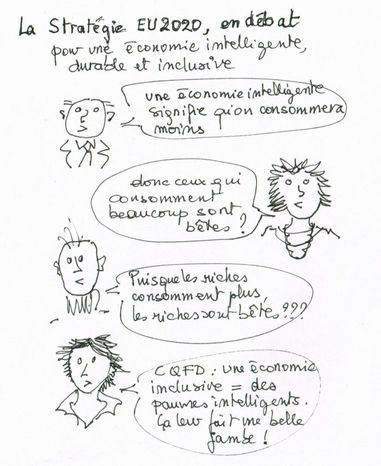 La Stratégie EU2020, en débat
pour une économie intelligente,
durable et inclusive
une économie intelligente
signifie qu'on consommera
moins
donc ceux qui
consomment
beaucoup sont
bêtes ?
Puisque les riches
consomment plus,
les riches sont bêtes ???
CQFD : une économie
inclusive = des
pauvres intelligents.
Ça leur fait une belle
jambe !